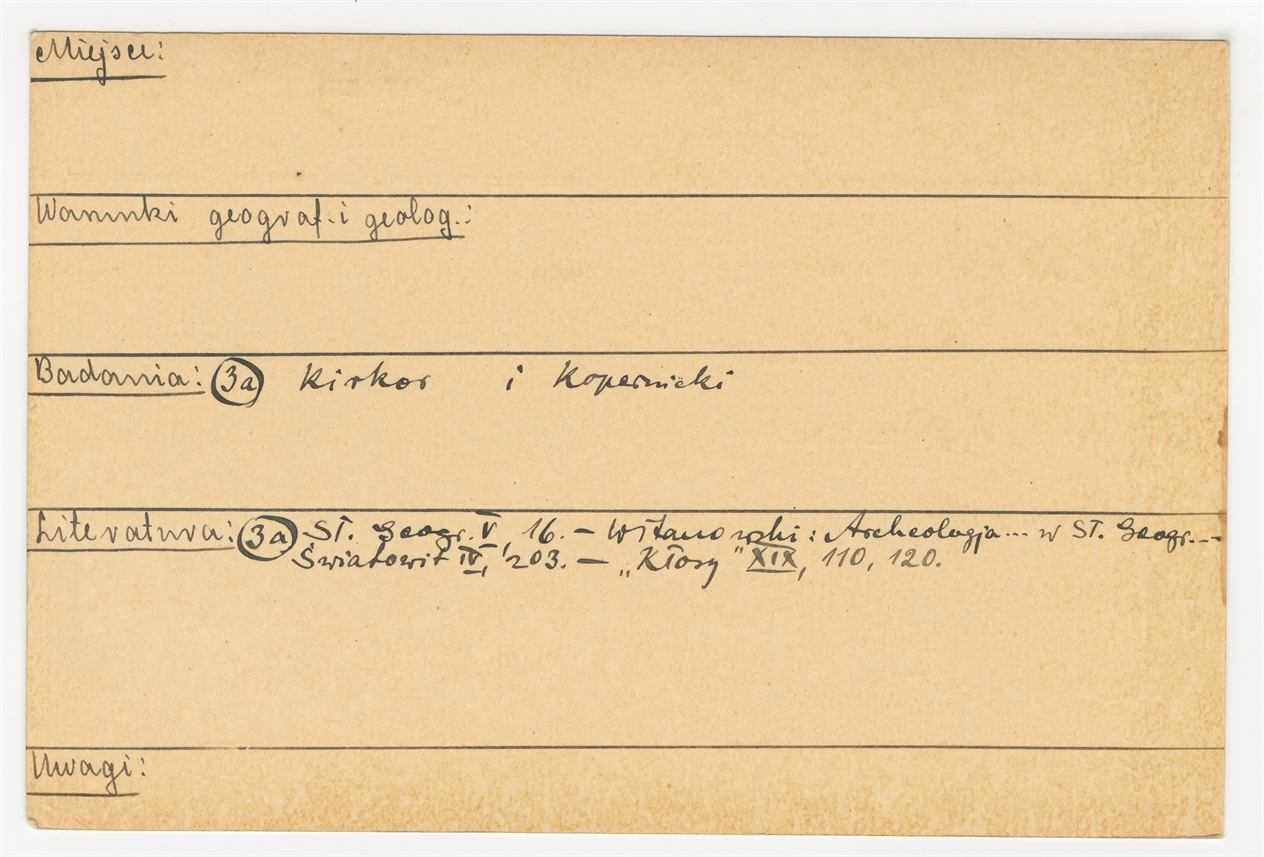 Miejsce:
Warunki geograf. i geolog.:
Badania: 3a Kirkor i Kopernicki
Literatura: 3a Sł. Geogr. V, 16. – Witanowski: Archeologja... w Sł. Geogr. –
Światowit IV, 203. – „Kłosy" XIX, 110, 120.
Uwagi: